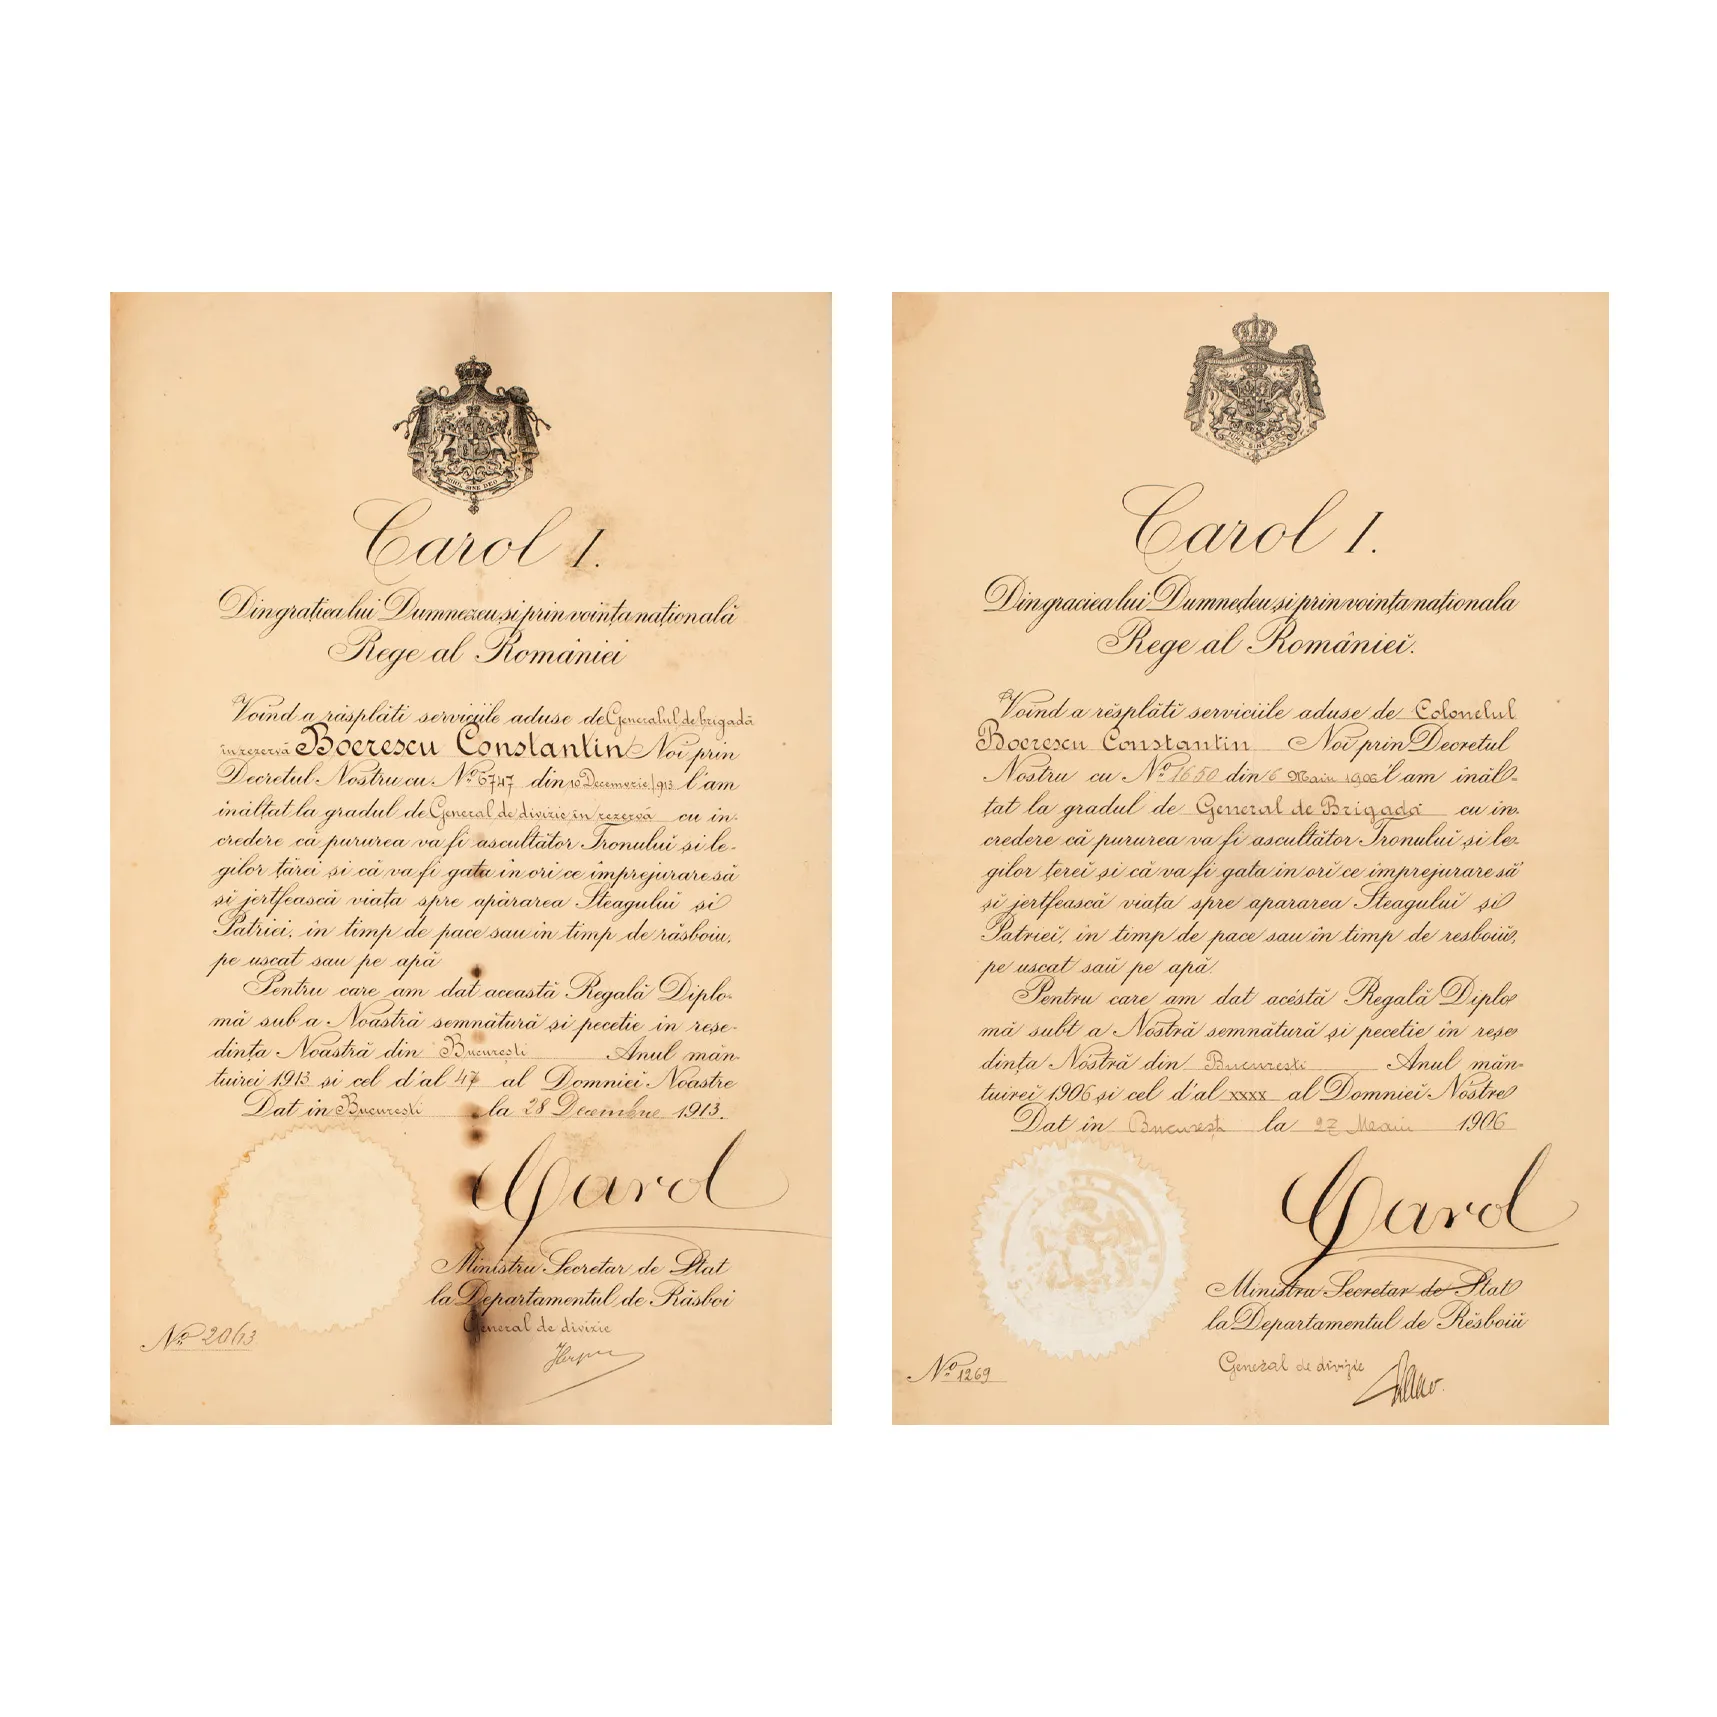 NIHIL SINE DEO
Carol I.
Din grația lui Dumnezeu și prin voința națională
Rege al României
Voind a răsplăti serviciile aduse de Generalul de brigadă
în rezervă Boerescu Constantin Noi prin
Decretul Nostru cu No 6747 din 10 Decemvrie/913 l'am
înălțat la gradul de General de divizie în rezervă cu in-
credere că pururea va fi ascultător Tronului și le-
gilor țărei și că va fi gata in ori ce împrejurare să
și jertfească viața spre apărarea Steagului și
Patriei, in timp de pace sau in timp de răsboiu,
pe uscat sau pe apă
Pentru care am dat această Regală Diplo-
mă sub a Noastră semnătură și pecetie in reșe-
dința Noastră din București Anul mân-
tuirei 1913 și cel d'al 47 al Domniei Noastre
Dat în București la 28 Decembrie 1913.
Carol
Ministru Secretar de Stat
la Departamentul de Răsboi
General de divizie
No 2063
NIHIL SINE DEO
Carol I.
Din graciea lui Dumneḑeu și prin voința naționala
Rege al Românieĭ.
Voind a rĕsplăti serviciile aduse de Colonelul
Boerescu Constantin Noĭ prin Decretul
Nostru cu No 1650 din 6 Maiu 1906 l'am înăl-
țat la gradul de General de Brigadă cu in-
credere că pururea va fi ascultător Tronuluĭ și le-
gilor țereĭ și că va fi gata in orĭ ce împrejurare să
șĭ jertfească viața spre apararea Steaguluĭ și
Patrieĭ, in timp de pace sau în timp de resboiŭ,
pe uscat saŭ pe apă.
Pentru care am dat acéstă Regală Diplo-
mă subt a Nóstră semnătură și pecetie în reșe-
dința Nóstră din Bucuresti Anul mân-
tuireĭ 1906 și cel d'al xxxx al Domnieĭ Nóstre
Dat în București la 27 Maiu 1906
Carol
Ministru Secretar de Stat
la Departamentul de Rĕsboiŭ
General de divizie
No 1269